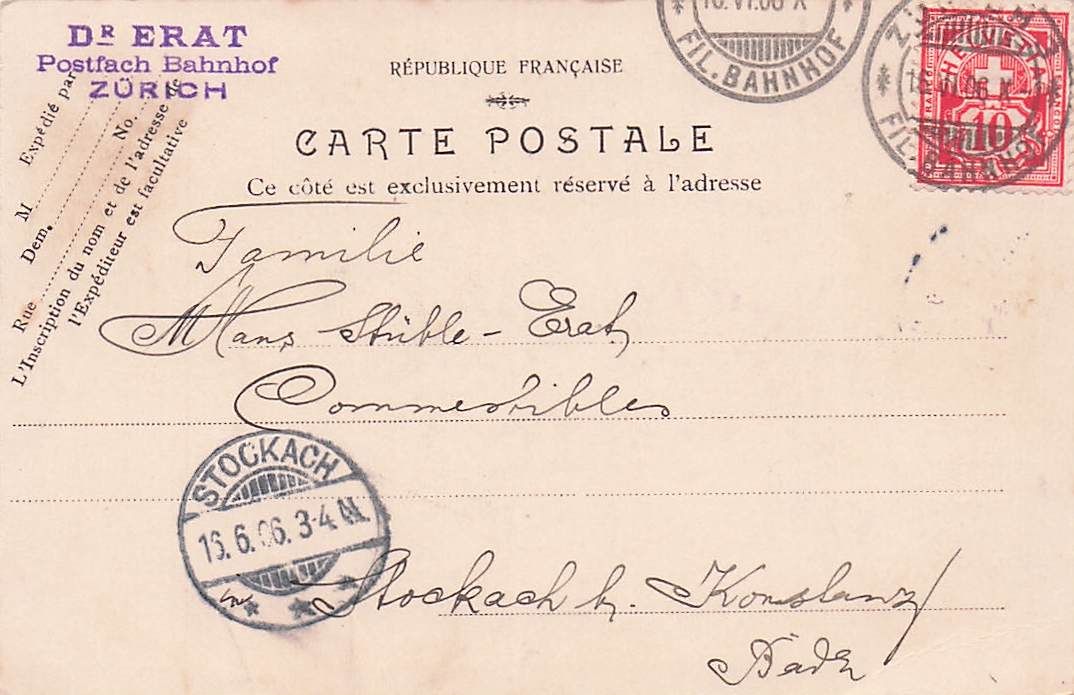 DR ERAT
Postfach Bahnhof
ZÜRICH
M Expédié par
Dem.
Rue No.
L'Inscription du nom et de l'adresse de
l'Expéditeur est facultative
RÉPUBLIQUE FRANÇAISE
CARTE POSTALE
Ce côté est exclusivement réservé à l'adresse
16.VI.06 X
FIL. BAHNHOF
FIL. BAHNHOF
HELVETIA
FRANCO
10
Familie
Hans Stüble-Erat
Commestibles
STOCKACH
16.6.06.3-4 N.
Stockach b. Konstanz
Baden